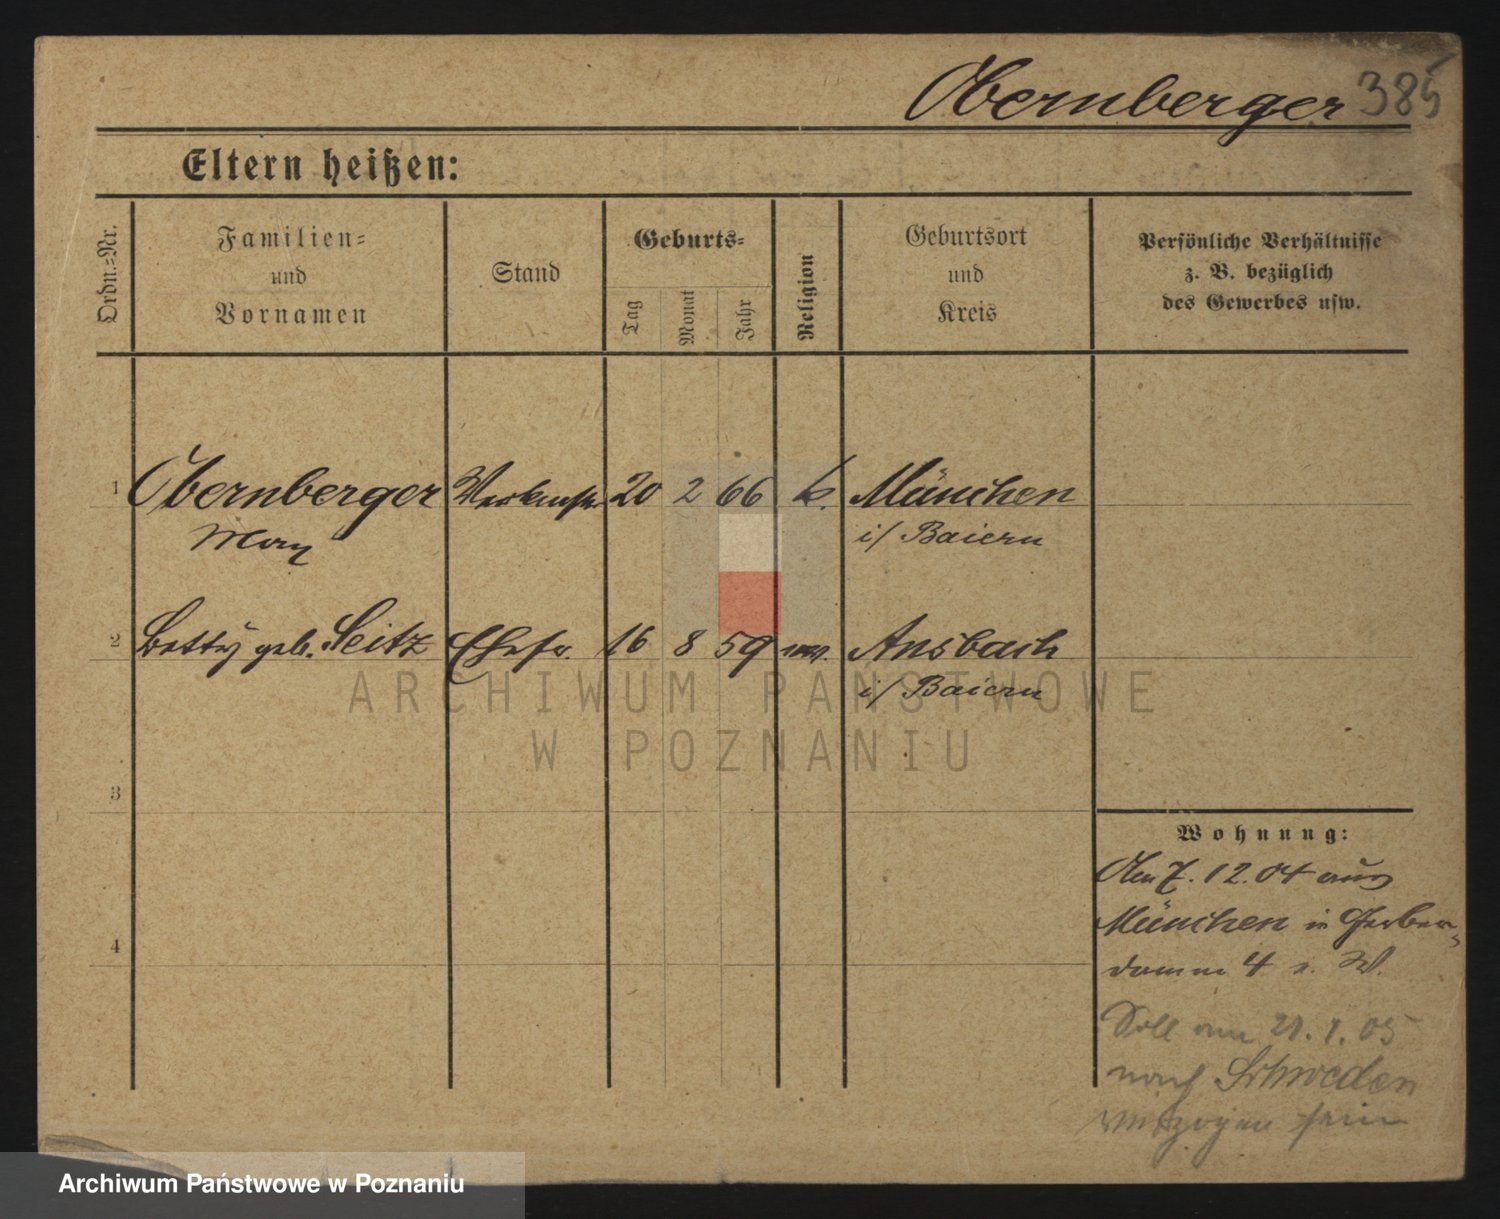 Obernberger 385
Eltern heißen:
Ordn.-Nr.
Familien-
und
Vornamen
Stand
Geburts-
Tag
Monat
Jahr
Religion
Geburtsort
und
Kreis
Persönliche Verhältnisse
z. B. bezüglich
des Gewerbes usw.
1 Obernberger 20 2 66 k. München
Max i/ Baiern
2 Betty geb. Seitz Ehefr. 16 8 59 Ansbach
i/ Baiern
3
4
Wohnung:
Am 7. 12. 04 aus
München in Gerber-
damm 4 z. W.
Soll am 21. 1. 05
nach Schweden
verzogen sein
ARCHIWUM PAŃSTWOWE
W POZNANIU
Archiwum Państwowe w Poznaniu